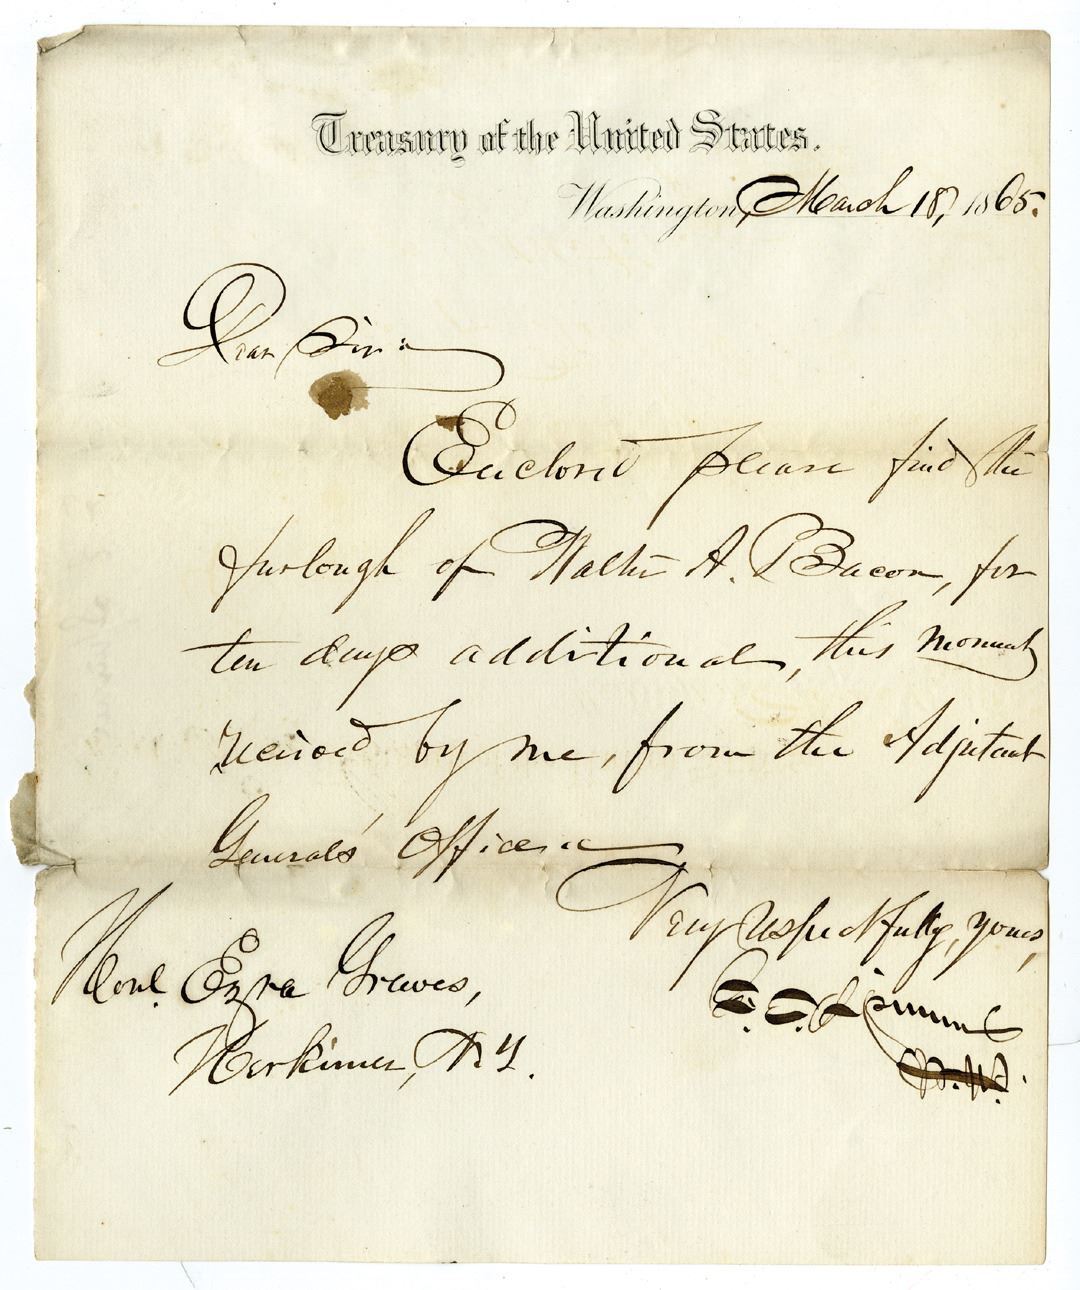 Treasury of the United States.
Washington, March 18, 1865.
Dear Sir:
Enclosed please find the
furlough of Walter A. Bacon, for
ten days additional, this moment
received by me, from the Adjutant
General's Office.
Very respectfully, yours,
Honl. Ezra Graves,
Herkimer, N.Y.